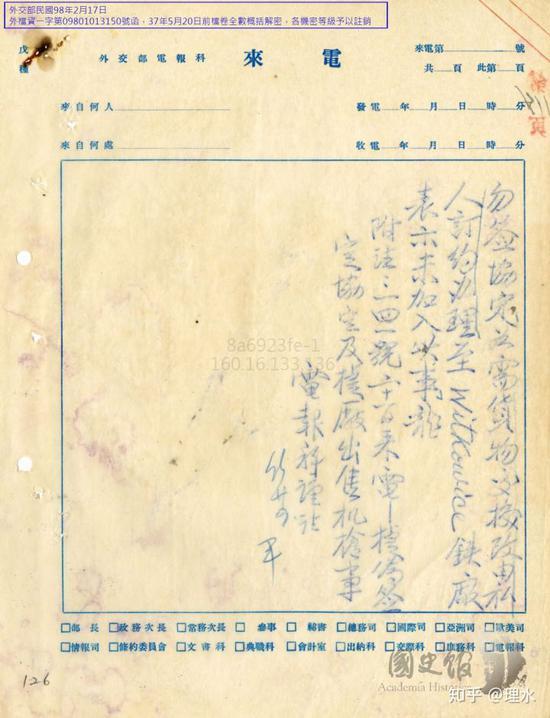 外交部民國98年2月17日
外檔資一字第09801013150號函，37年5月20日前檔卷全數概括解密，各機密等級予以註銷
戊種
外交部電報科
來電
來電第 號
共 頁 此第 頁
來自何人
發電 年 月 日 時 分
來自何處
收電 年 月 日 時 分
勿签協定 需貨物交換改由私
人訂約办理至Witkowice鉄廠
表示未加入此事
附注 四一號 來電 捷偽签
定協定及捷廠出售机槍事
電報科謹註
8a6923fe-1
160.16.133.136
□部長 □政務次長 □常務次長 □參事 □秘書 □總務司 □國際司 □亞洲司 □歐美司
□情報司 □條約委員會 □文書科 □典職科 □會計室 □出納科 □交際科 □庶務科 □電報科
126
國史館
Academia Historica
知乎 @理水